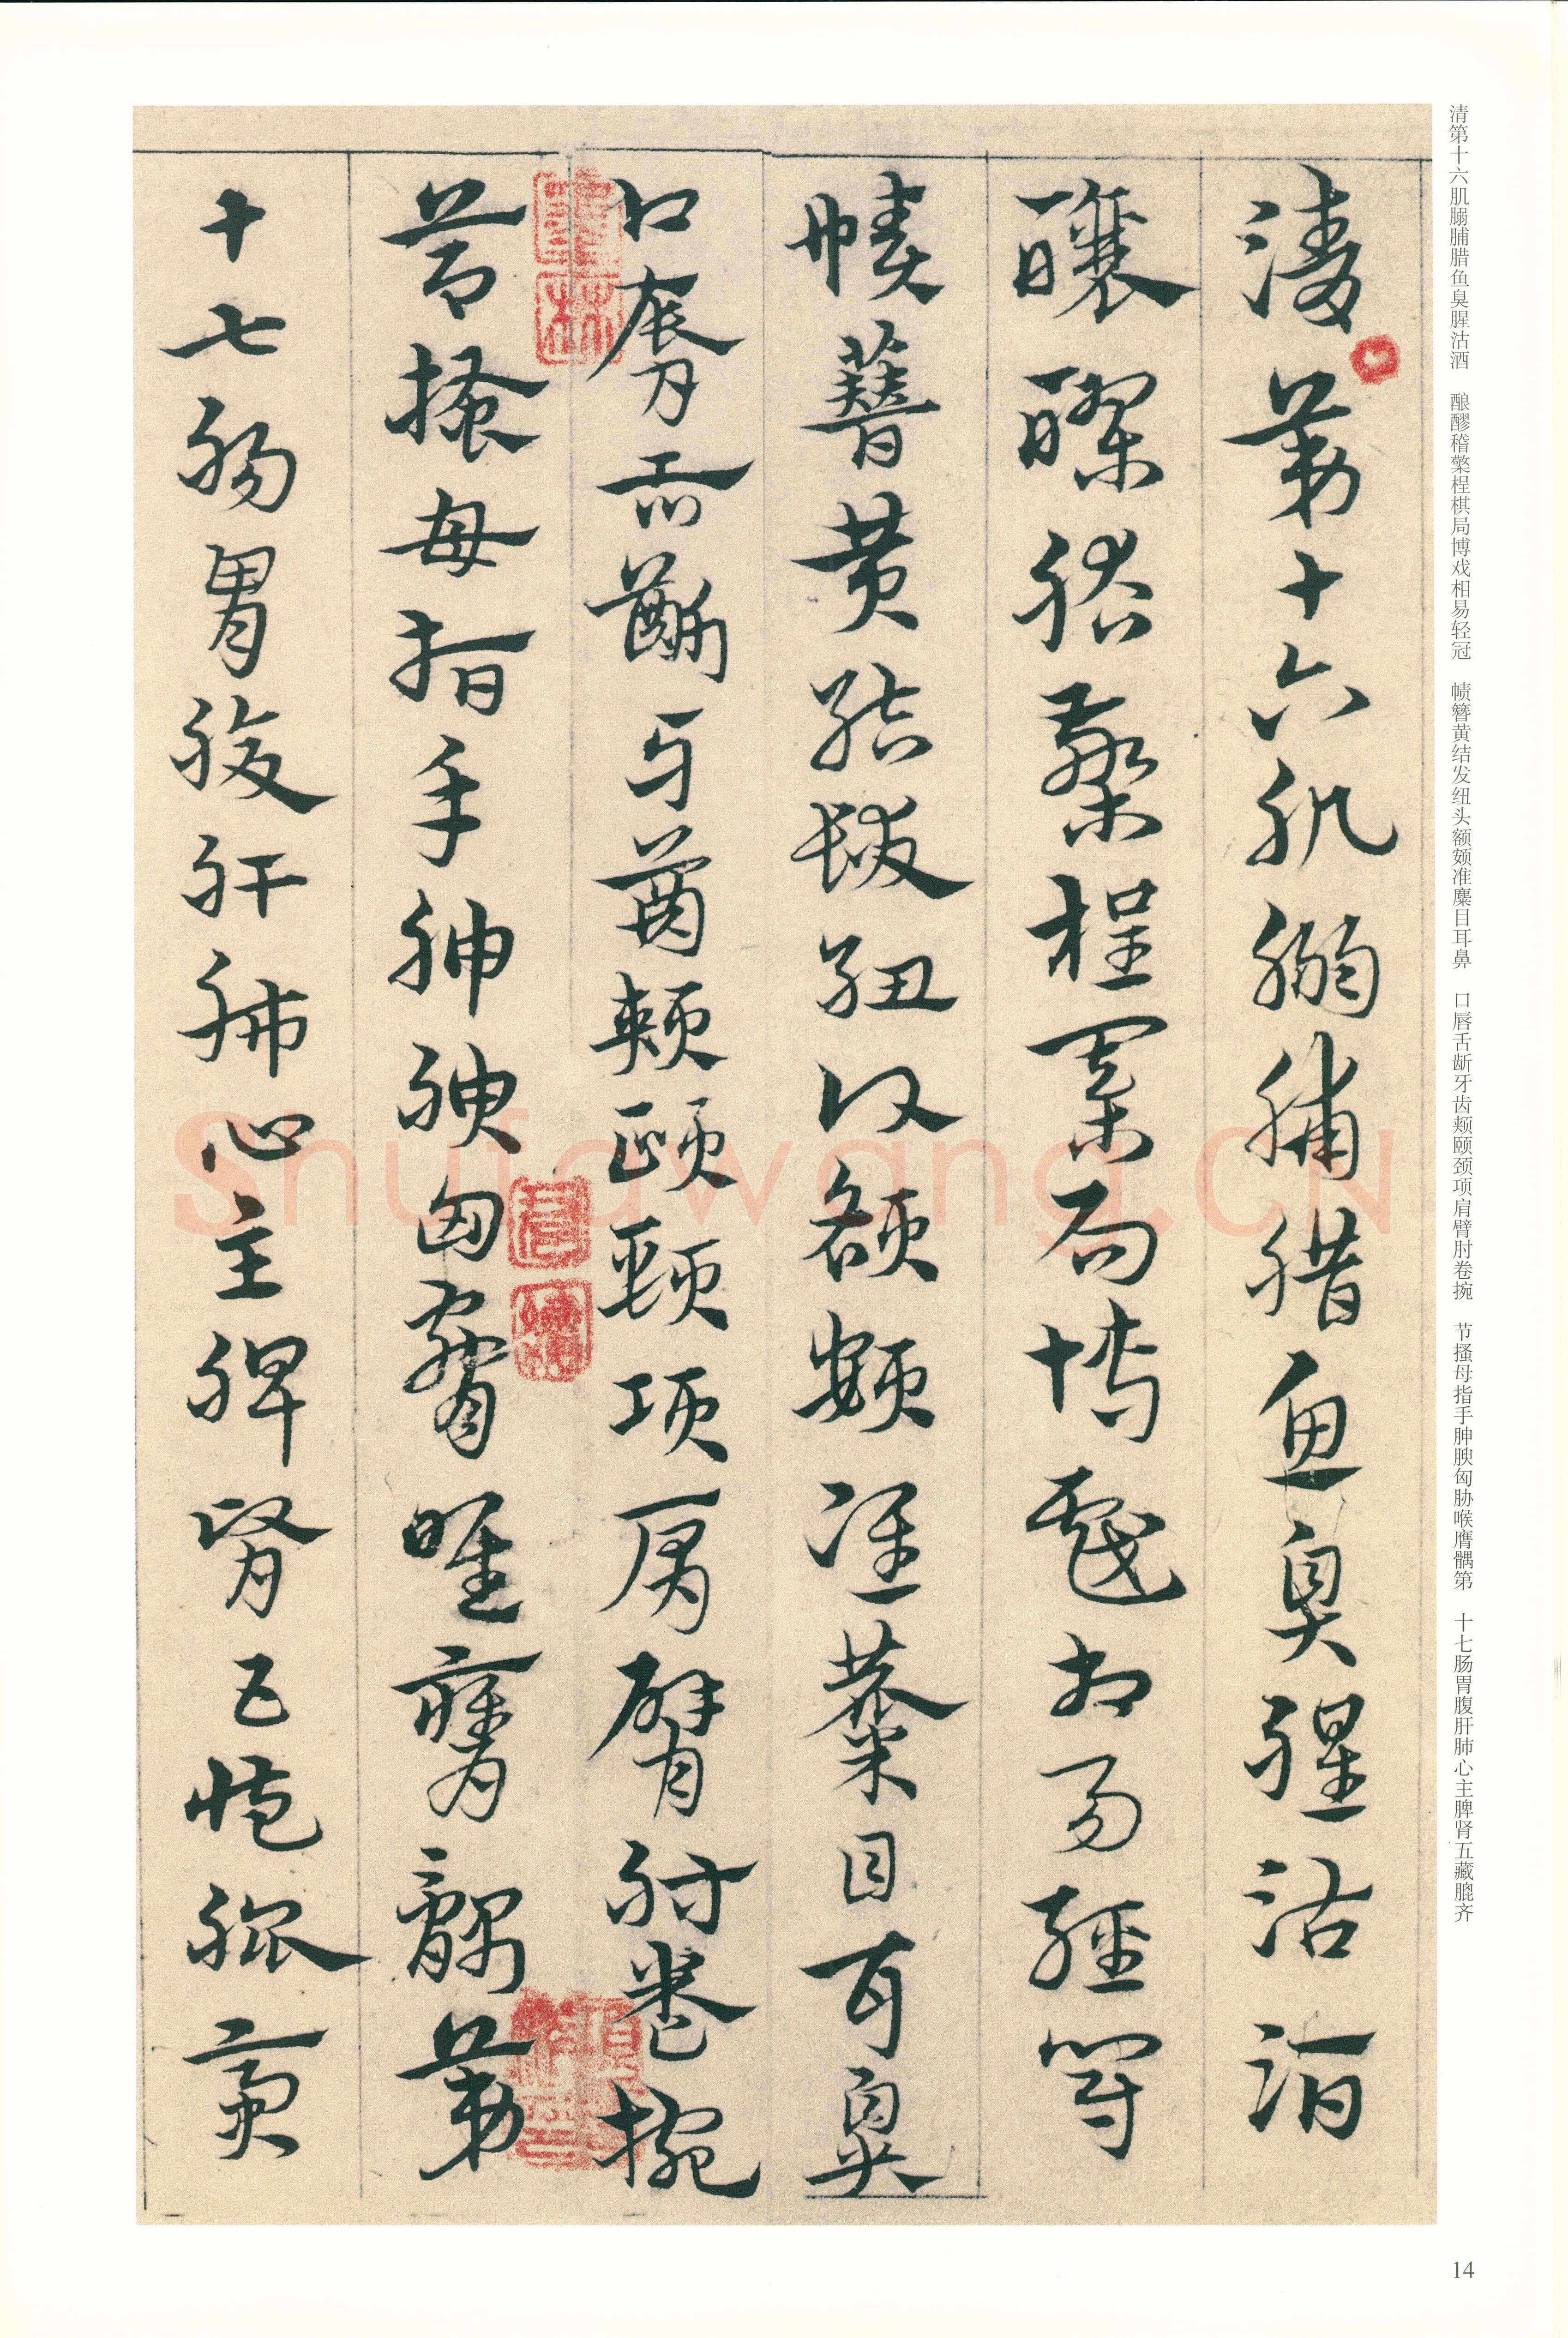 清第十六肌䐧脯腊鱼臭腥沽酒　酿醪稽檠桯棋局博戏相易轻冠　帻簪黄结发纽头额頞准麋目耳鼻　口唇舌龂牙齿颊颐颈项肩臂肘卷捥　节搔母指手胂腴匈胁喉膺髃第　十七肠胃腹肝肺心主脾肾五藏膍齐
清第十六肌䐧脯腊魚臭腥沽酒
釀醪稽檠桯棊局博戲相易輕冠
幘簪黄結髮紐頭額頞準麋目耳鼻
口脣舌齗牙齒頰頤頸項肩臂肘卷捥
節搔母指手胂腴匈脅喉膺髃第
十七腸胃腹肝肺心主脾腎五藏膍齊
Shufawang.CN
14